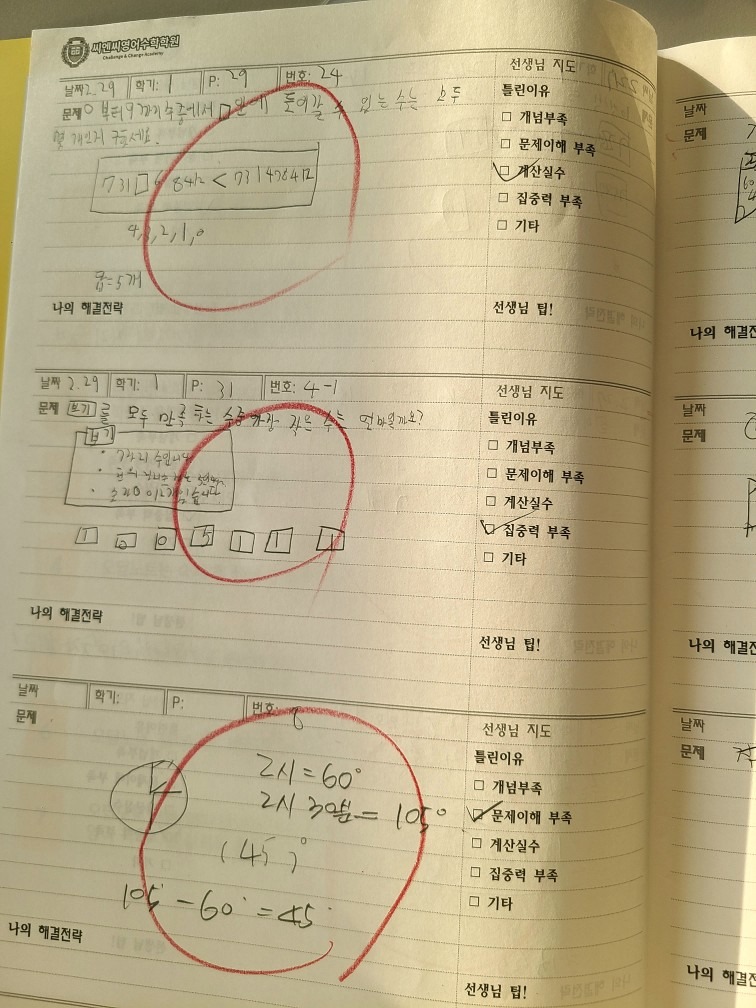 씨앤씨영어수학학원
Challenge & Change Academy
날짜 2.29 학기: 1 P: 29 번호: 24
문제 0부터 9까지 수중에서 □안에 들어갈 수 있는 수는 모두
몇 개인지 구하세요.
731□ 8412 < 731478412
4,3,2,1,0
답=5개
나의 해결전략
선생님 지도
틀린이유
□ 개념부족
□ 문제이해 부족
□ 계산실수
□ 집중력 부족
□ 기타
선생님 팁!
날짜 2.29 학기: 1 P: 31 번호: 4-1
문제 보기 를 모두 만족하는 수중 가장 작은 수는 얼마일까요?
보기
· 7자리 수입니다
·
· 숫자 0이 2개 있습니다
1 0 0 5 1 1 1
나의 해결전략
선생님 지도
틀린이유
□ 개념부족
□ 문제이해 부족
□ 계산실수
□ 집중력 부족
□ 기타
선생님 팁!
날짜 학기: P: 번호: 6
문제
2시=60°
2시 30분=105°
(45)°
105° - 60° = 45°
나의 해결전략
선생님 지도
틀린이유
□ 개념부족
□ 문제이해 부족
□ 계산실수
□ 집중력 부족
□ 기타
선생님 팁!
날짜
문제
나의 해결전
날짜
문제
나의 해결
날짜
문제
나의 해결